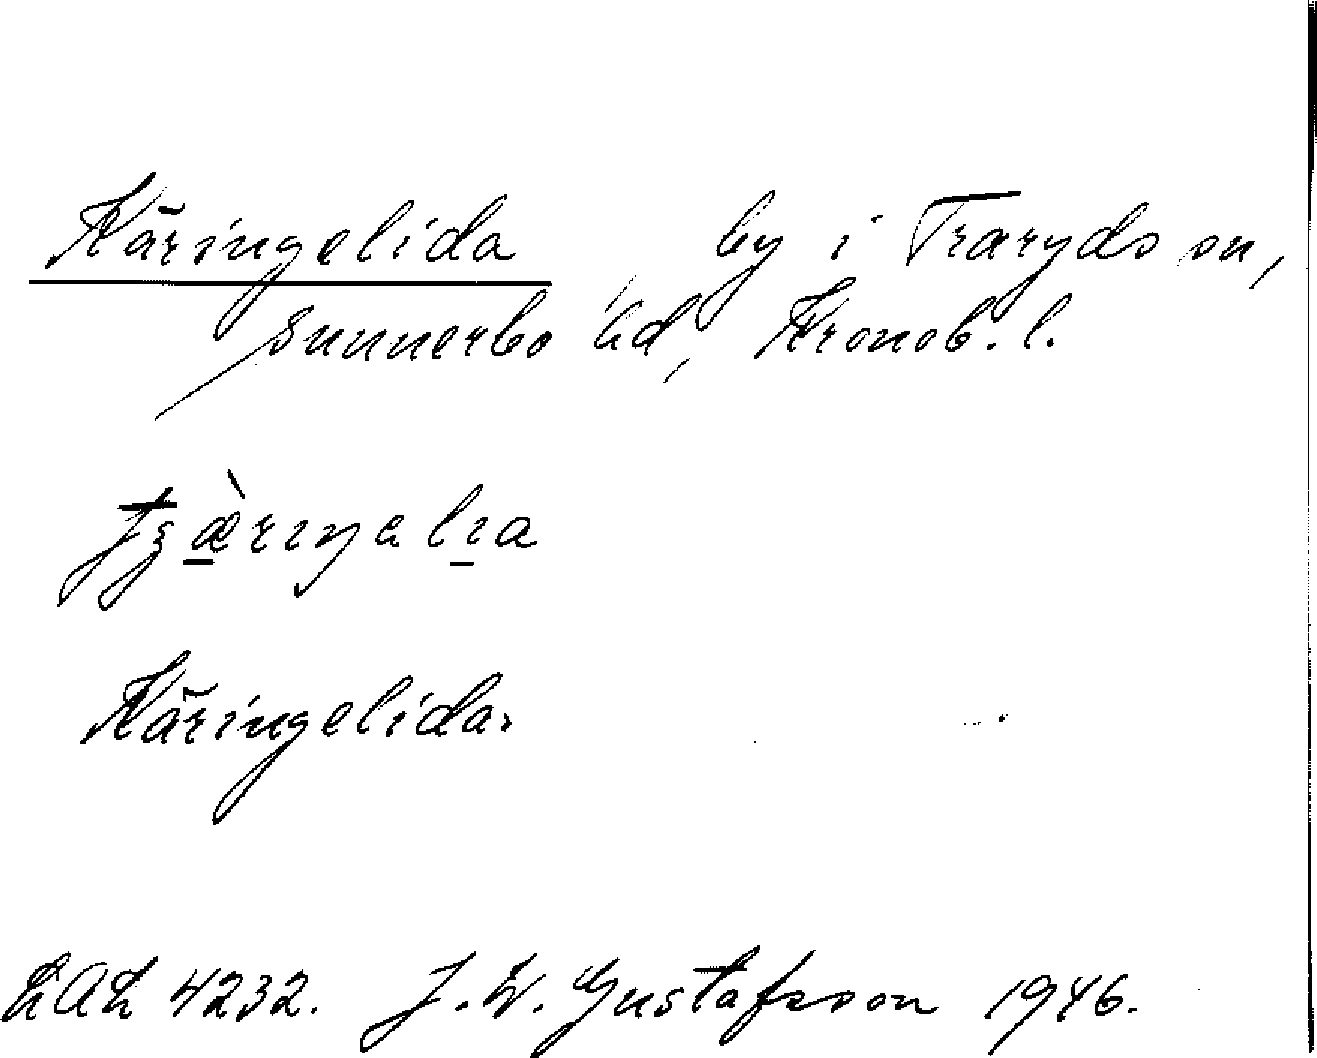 Käringelida, by i Traryds sn,
Sunnerbo hd, Kronob. l.
Käringelida.
LAL 4232. J. W. Gustafsson 1946.